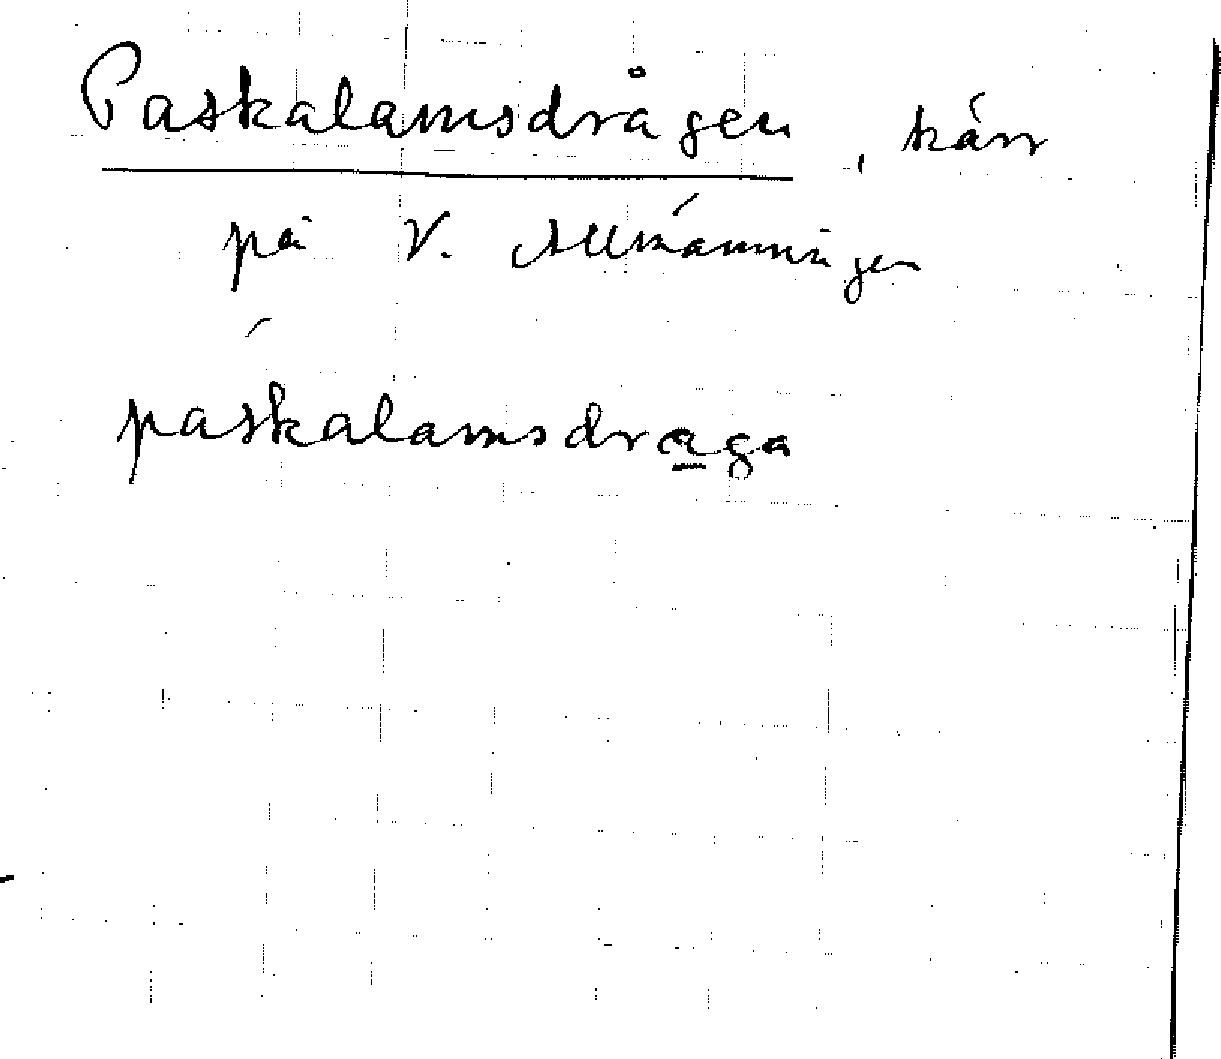 Paskalamsdrågen, kärr
på V. Allmänningen
páskalamsdra̲ga